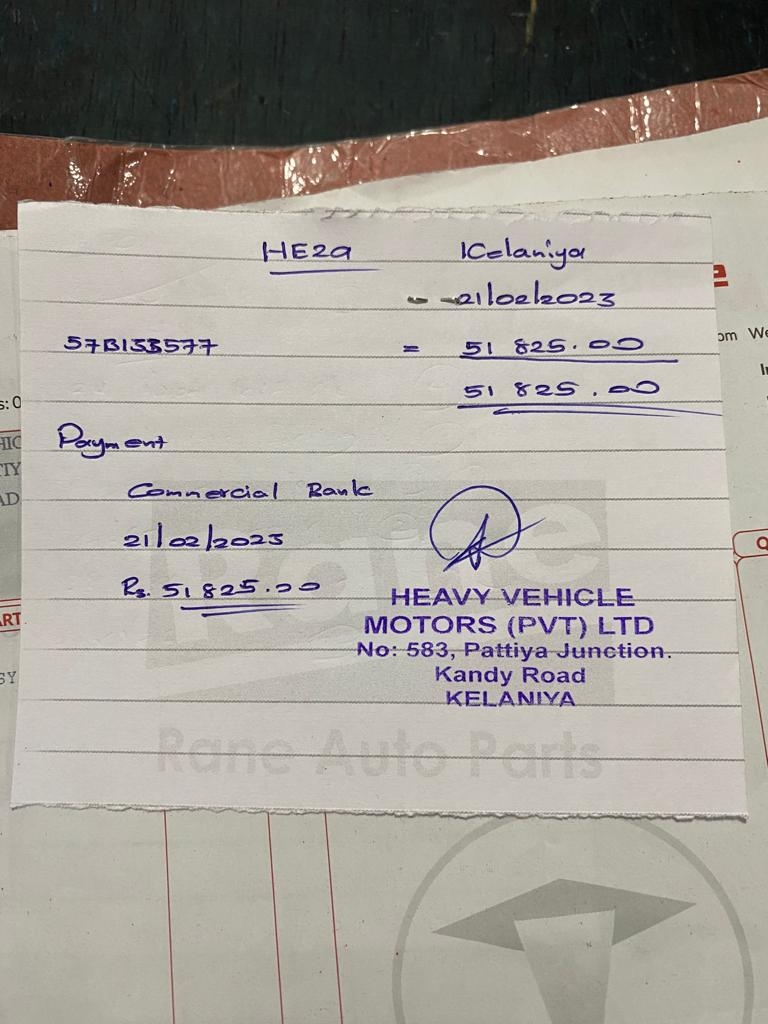 HE2a
Kelaniya
21/02/2023
57B133577 = 51 825.00
51 825.00
Payment
Commercial Bank
21/02/2023
Rs. 51 825.00
HEAVY VEHICLE
MOTORS (PVT) LTD
No: 583, Pattiya Junction.
Kandy Road
KELANIYA
Rane
Rane Auto Parts